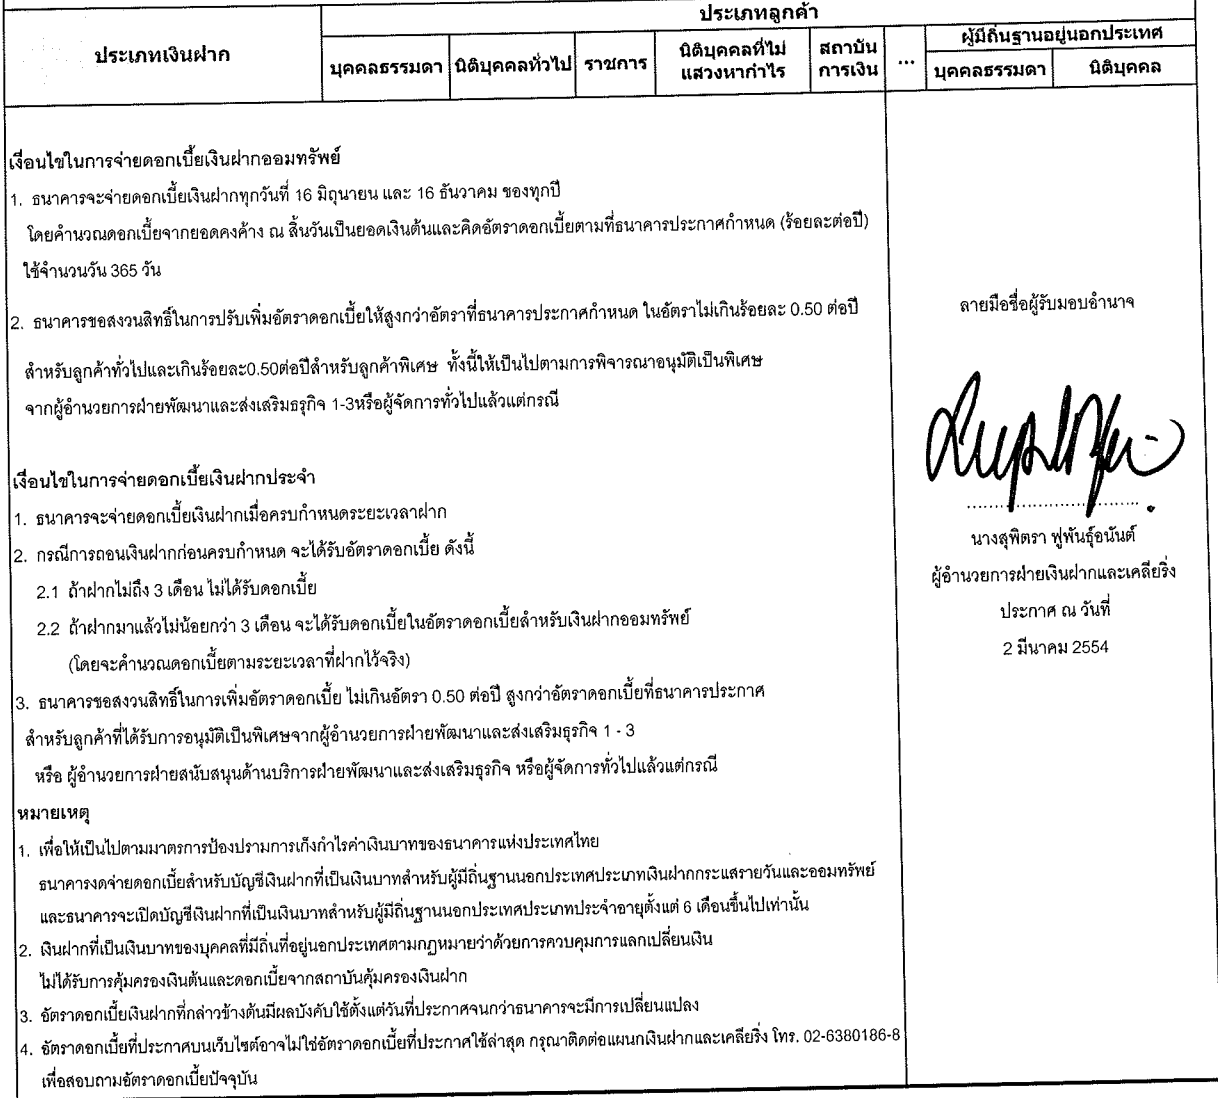 ประเภทลูกค้า
ประเภทเงินฝาก
บุคคลธรรมดา
นิติบุคคลทั่วไป
ราชการ
นิติบุคคลที่ไม่
แสวงหากำไร
สถาบัน
การเงิน
...
ผู้มีถิ่นฐานอยู่นอกประเทศ
บุคคลธรรมดา
นิติบุคคล
เงื่อนไขในการจ่ายดอกเบี้ยเงินฝากออมทรัพย์
1. ธนาคารจะจ่ายดอกเบี้ยเงินฝากทุกวันที่ 16 มิถุนายน และ 16 ธันวาคม ของทุกปี
โดยคำนวณดอกเบี้ยจากยอดคงค้าง ณ สิ้นวันเป็นยอดเงินต้นและคิดอัตราดอกเบี้ยตามที่ธนาคารประกาศกำหนด (ร้อยละต่อปี)
ใช้จำนวนวัน 365 วัน
2. ธนาคารขอสงวนสิทธิ์ในการปรับเพิ่มอัตราดอกเบี้ยให้สูงกว่าอัตราที่ธนาคารประกาศกำหนด ในอัตราไม่เกินร้อยละ 0.50 ต่อปี
สำหรับลูกค้าทั่วไปและเกินร้อยละ0.50ต่อปีสำหรับลูกค้าพิเศษ ทั้งนี้ให้เป็นไปตามการพิจารณาอนุมัติเป็นพิเศษ
จากผู้อำนวยการฝ่ายพัฒนาและส่งเสริมธรุกิจ 1-3หรือผู้จัดการทั่วไปแล้วแต่กรณี
เงื่อนไขในการจ่ายดอกเบี้ยเงินฝากประจำ
1. ธนาคารจะจ่ายดอกเบี้ยเงินฝากเมื่อครบกำหนดระยะเวลาฝาก
2. กรณีการถอนเงินฝากก่อนครบกำหนด จะได้รับอัตราดอกเบี้ย ดังนี้
2.1 ถ้าฝากไม่ถึง 3 เดือน ไม่ได้รับดอกเบี้ย
2.2 ถ้าฝากมาแล้วไม่น้อยกว่า 3 เดือน จะได้รับดอกเบี้ยในอัตราดอกเบี้ยสำหรับเงินฝากออมทรัพย์
(โดยจะคำนวณดอกเบี้ยตามระยะเวลาที่ฝากไว้จริง)
3. ธนาคารขอสงวนสิทธิ์ในการเพิ่มอัตราดอกเบี้ย ไม่เกินอัตรา 0.50 ต่อปี สูงกว่าอัตราดอกเบี้ยที่ธนาคารประกาศ
สำหรับลูกค้าที่ได้รับการอนุมัติเป็นพิเศษจากผู้อำนวยการฝ่ายพัฒนาและส่งเสริมธุรกิจ 1 - 3
หรือ ผู้อำนวยการฝ่ายสนับสนุนด้านบริการฝ่ายพัฒนาและส่งเสริมธุรกิจ หรือผู้จัดการทั่วไปแล้วแต่กรณี
หมายเหตุ
1. เพื่อให้เป็นไปตามมาตรการป้องปรามการเก็งกำไรค่าเงินบาทของธนาคารแห่งประเทศไทย
ธนาคารงดจ่ายดอกเบี้ยสำหรับบัญชีเงินฝากที่เป็นเงินบาทสำหรับผู้มีถิ่นฐานนอกประเทศประเภทเงินฝากกระแสรายวันและออมทรัพย์
และธนาคารจะเปิดบัญชีเงินฝากที่เป็นเงินบาทสำหรับผู้มีถิ่นฐานนอกประเทศประเภทประจำอายุตั้งแต่ 6 เดือนขึ้นไปเท่านั้น
2. เงินฝากที่เป็นเงินบาทของบุคคลที่มีถิ่นที่อยู่นอกประเทศตามกฎหมายว่าด้วยการควบคุมการแลกเปลี่ยนเงิน
ไม่ได้รับการคุ้มครองเงินต้นและดอกเบี้ยจากสถาบันคุ้มครองเงินฝาก
3. อัตราดอกเบี้ยเงินฝากที่กล่าวข้างต้นมีผลบังคับใช้ตั้งแต่วันที่ประกาศจนกว่าธนาคารจะมีการเปลี่ยนแปลง
4. อัตราดอกเบี้ยที่ประกาศบนเว็บไซต์อาจไม่ใช่อัตราดอกเบี้ยที่ประกาศใช้ล่าสุด กรุณาติดต่อแผนกเงินฝากและเคลียริ่ง โทร. 02-6380186-8
เพื่อสอบถามอัตราดอกเบี้ยปัจจุบัน
ลายมือชื่อผู้รับมอบอำนาจ
นางสุพิตรา ฟูพันธุ์อนันต์
ผู้อำนวยการฝ่ายเงินฝากและเคลียริ่ง
ประกาศ ณ วันที่
2 มีนาคม 2554